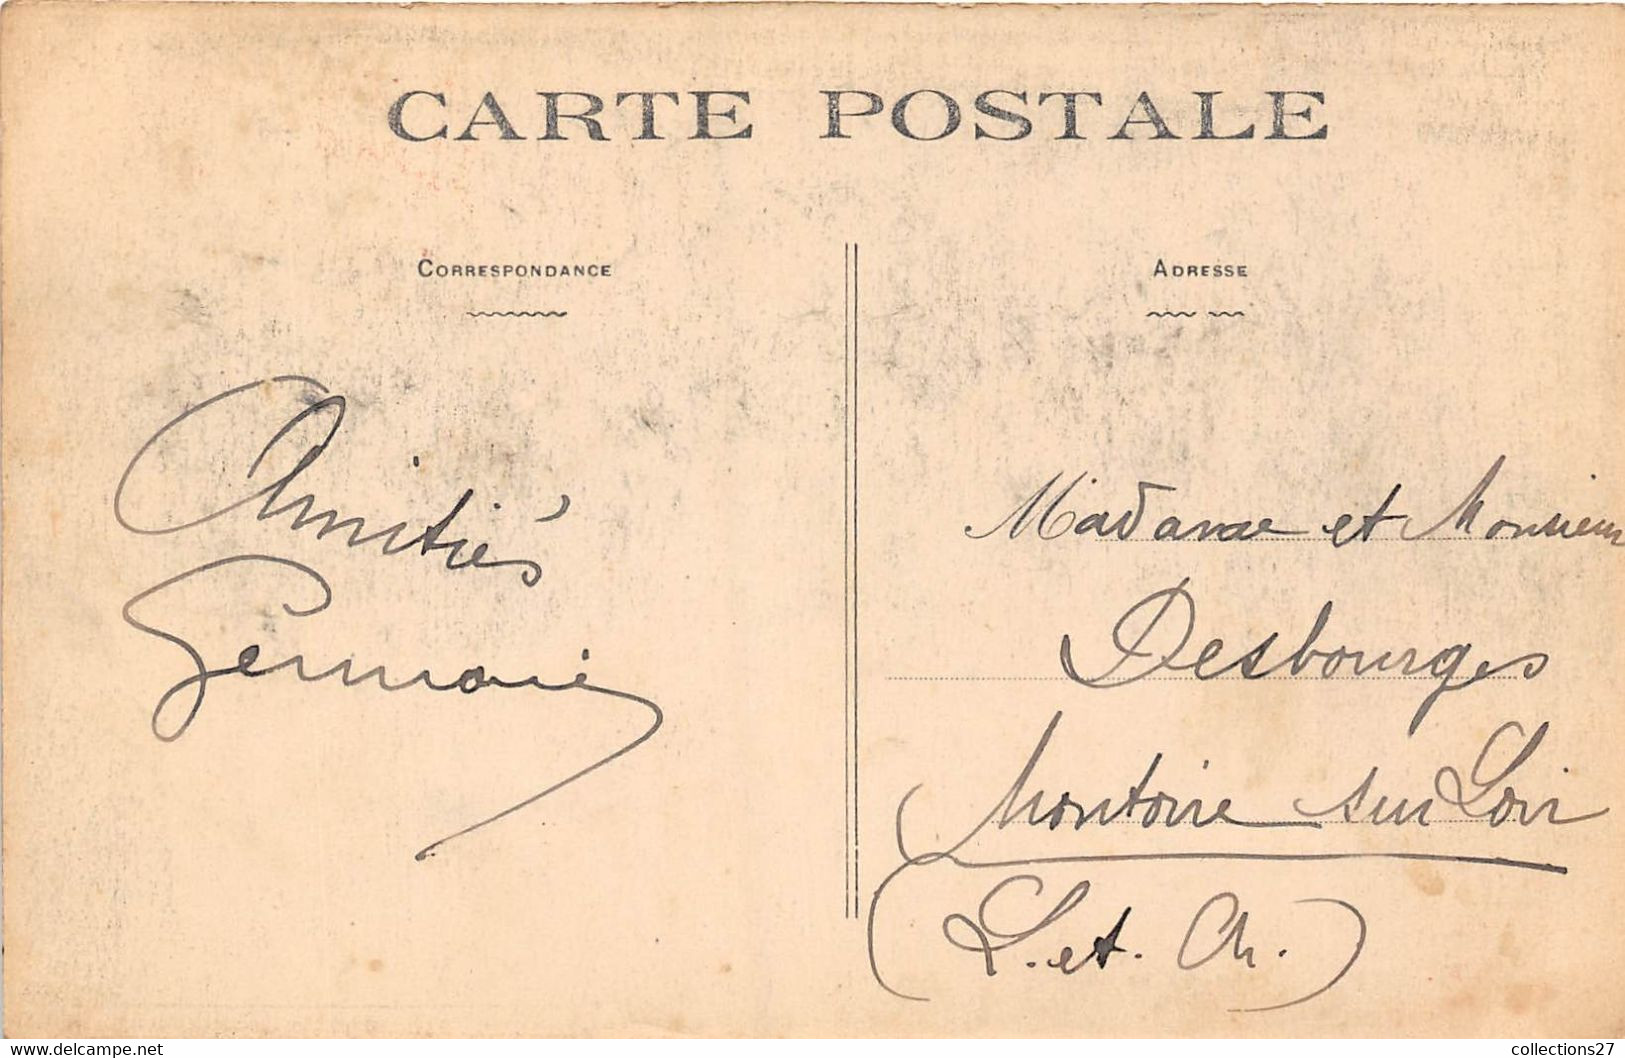 CARTE POSTALE
CORRESPONDANCE
Amitiés
Germaine
ADRESSE
Madame et Monsieur
Desbourges
Montoire sur Loir
(L. et. Ch.)
www.delcampe.net
collections27